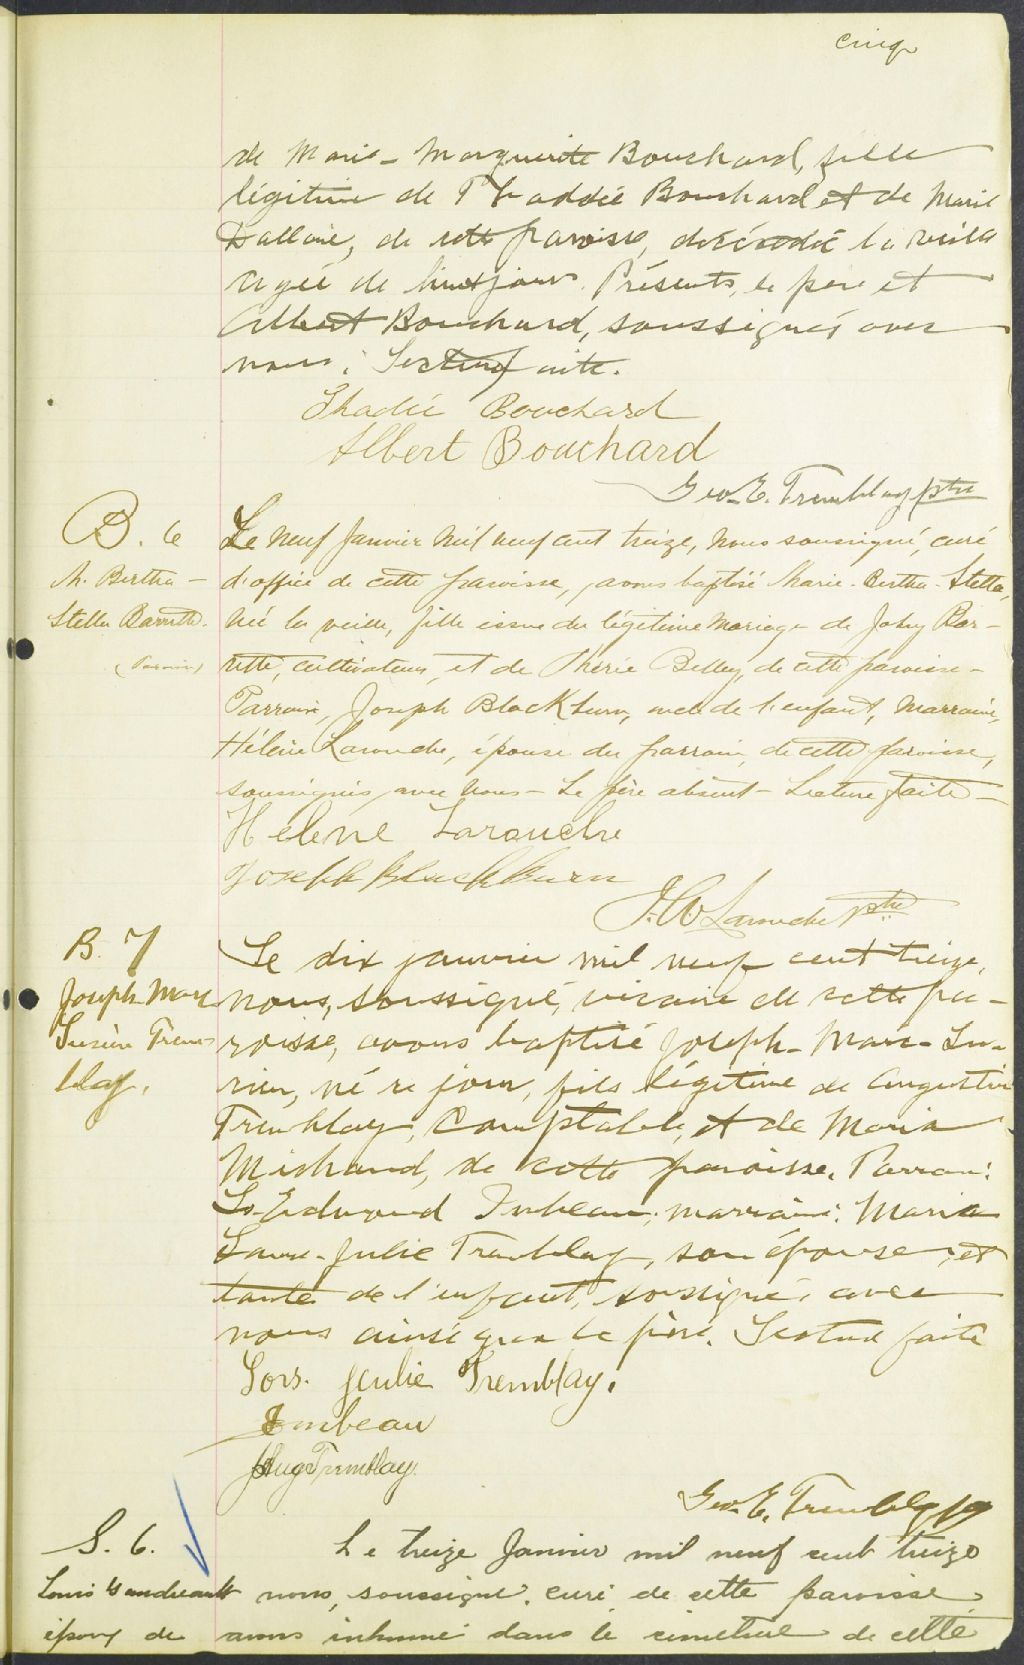 cinq
de Marie-Marguerite Bouchard, fille
légitime de Thaddée Bouchard et de Marie
Dallaire, de cette paroisse, décédée la veille
agée de huit jours. Présents, le père et
Albert Bouchard, soussignés avec
nous. Lecture faite.
Thadée Bouchard
Albert Bouchard
Geo. E. Tremblay ptre
B. 6
M. Bertha-
Stella Barrette.
Le neuf Janvier mil neuf cent treize, nous soussigné, curé
d'office de cette paroisse, avons baptisé Marie-Bertha-Stella,
née la veille, fille issue du légitime mariage de Johy Bar-
rette, cultivateur, et de Belley, de cette paroisse-
Parrain, Joseph Blackburn, oncle de l'enfant, Marraine,
Hélène Larouche, épouse du parrain, de cette paroisse,
soussignés avec nous- Le père absent- Lecture faite-
Hélène Larouche
Joseph Blackburn
Larouche Ptre
B. 7
Joseph Marc
Lucien Trem-
blay.
Le dix janvier mil neuf cent treize,
nous, soussigné, vicaire de cette pa-
roisse, avons baptisé Joseph-Marc-Lu-
cien, né ce jour, fils légitime de Augustin
Tremblay, Comptable, et de Maria
Michaud, de cette paroisse. Parrain:
Ls-Edmond Imbeau; marraine: Maria
Laure-Julie Tremblay, son épouse, et
tante de l'enfant, soussignés avec
nous ainsi que le père. Lecture faite
Julie Tremblay.
Imbeau
Aug Tremblay.
Geo. E. Tremblay ptre
S. 6.
Louis Gaudreault
époux de
Le treize Janvier mil neuf cent treize
nous, soussigné, curé de cette paroisse
avons inhumé dans le cimetière de cette